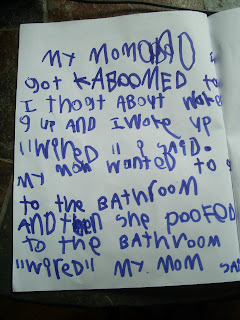 My MOM
got KABOOMED to
I thogt ABOUt wake
9 up AND I woke up
"wireD" I SAiD.
My mom wanted to
to the BAtHROOM
AND then she poofed
to the BAtHROOM
"wireD" My MOM SA